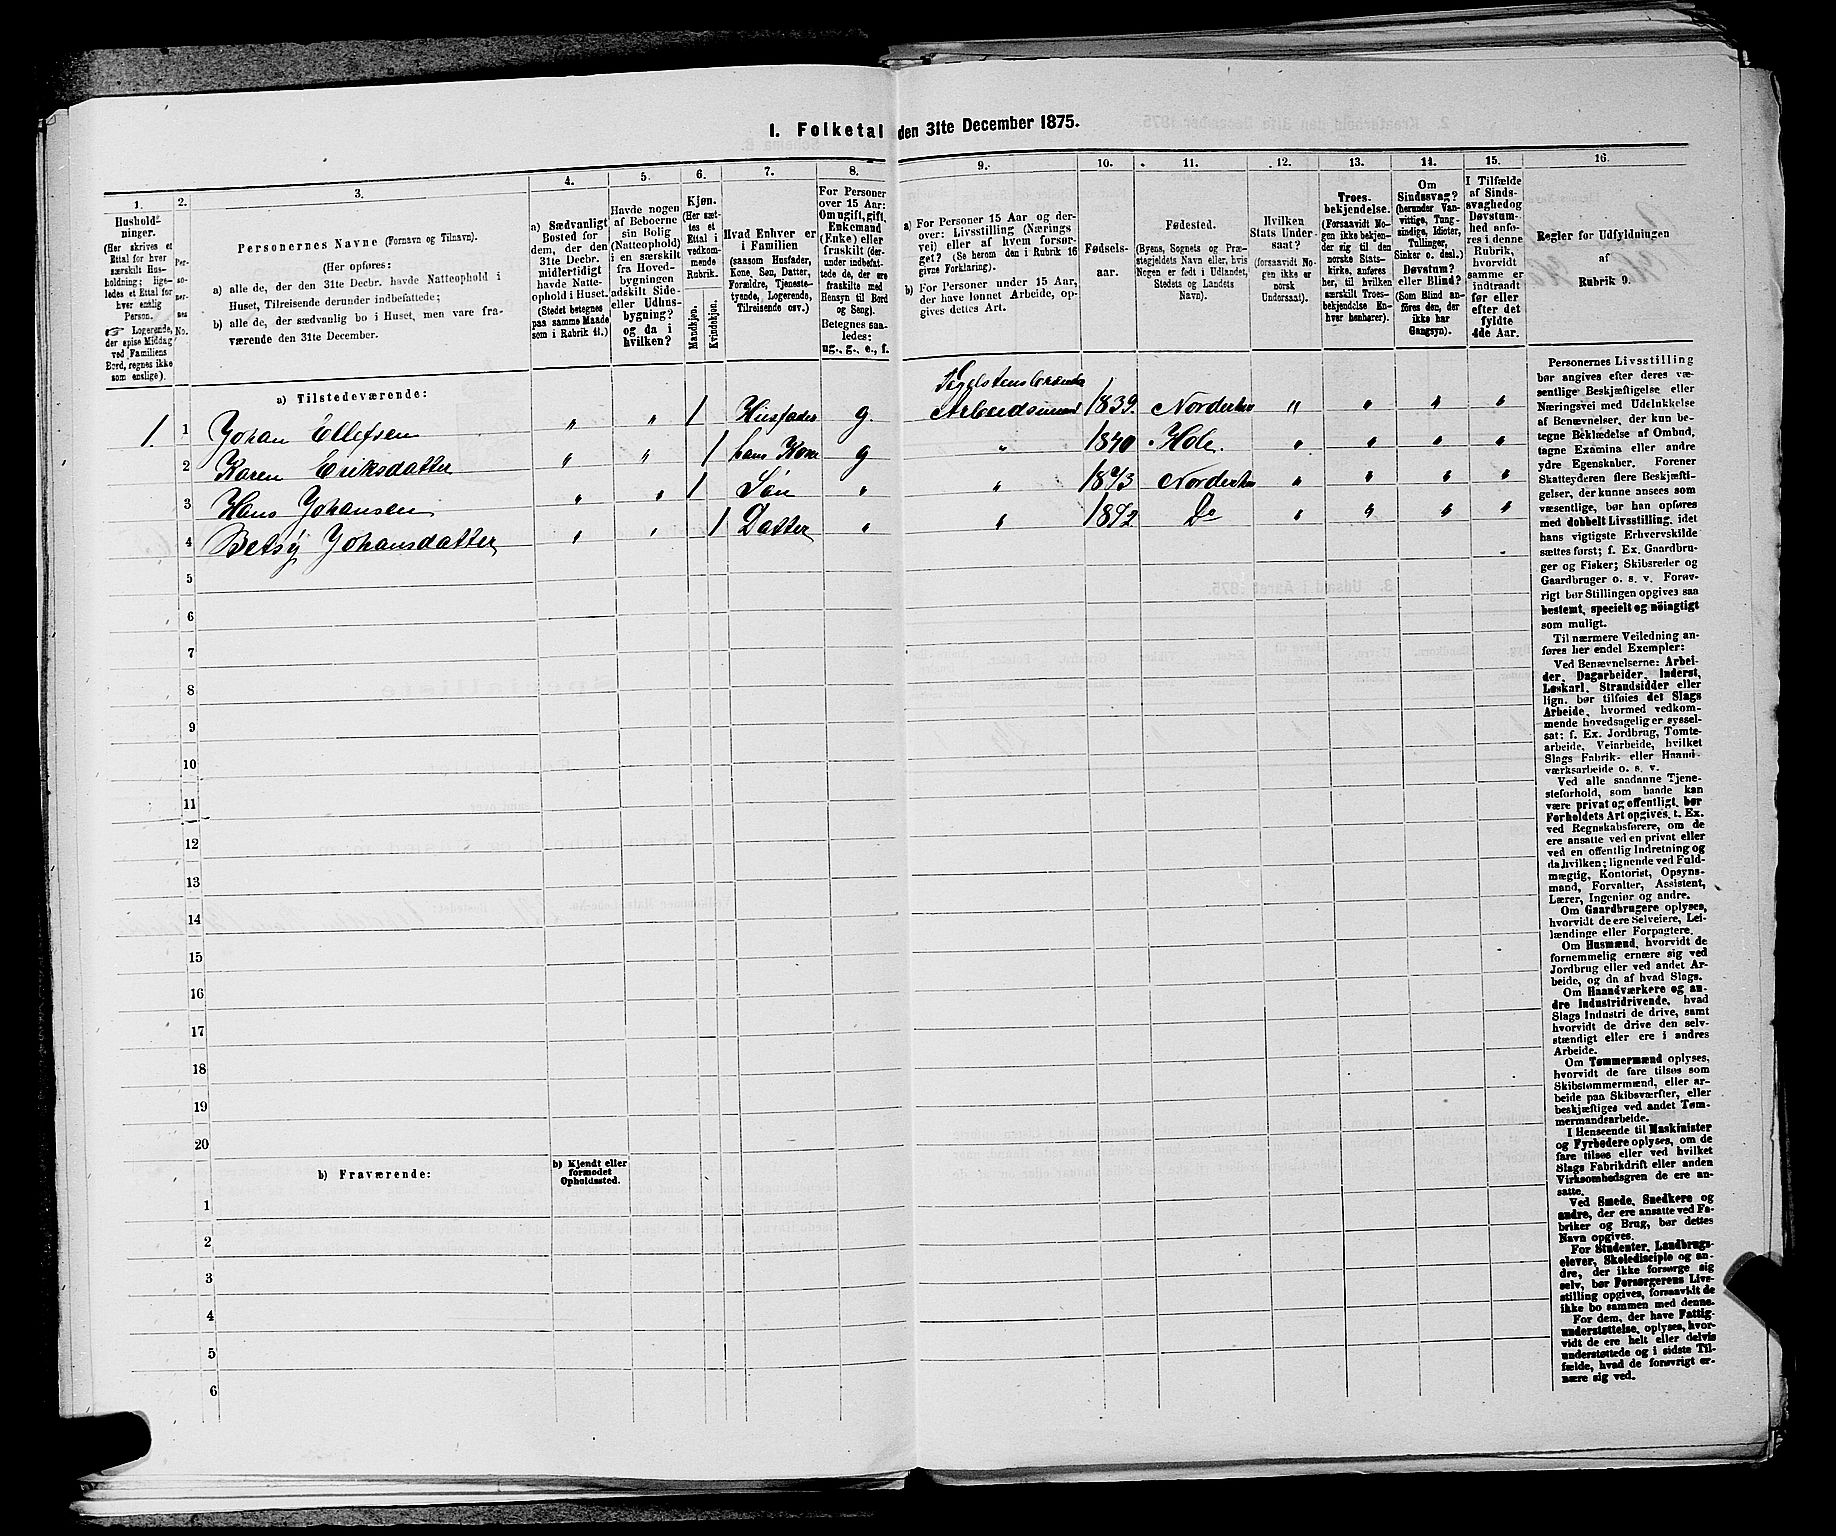 I. Folketal den 31te December 1875.
1.
Hushold-
ninger.
(Her skrives et
Ettal for hver
særskilt Hus-
holdning; lige-
ledes et Ettal for
hver enslig
Person.
☞ Logerende,
der spise Middag
ved Familiens
Bord, regnes ikke
som enslige).
2.
Per-
so-
ner-
nes
No.
3.
Personernes Navne (Fornavn og Tilnavn).
(Her opføres:
a) alle de, der den 31te Decbr. havde Natteophold i
Huset, Tilreisende derunder indbefattede;
b) alle de, der sædvanlig bo i Huset, men vare fra-
værende den 31te December.
4.
a) Sædvanligt
Bosted for
dem, der den
31te Decbr.
midlertidigt
havde Natte-
ophold i Huset.
(Stedet betegnes
paa samme Maade
som i Rubrik 11.)
5.
Havde nogen
af Beboerne
sin Bolig
(Natteophold)
i en særskilt
fra Hoved-
bygningen
adskilt Side-
eller Udhus-
bygning?
og da i
hvilken?
6.
Kjøn.
(Her sæt-
tes et
Ettal i
vedkom-
mende
Rubrik.
Mandkjøn.
Kvindekjøn.
7.
Hvad Enhver er
i Familien
(saasom Husfader,
Kone, Søn, Datter,
Forældre, Tjeneste-
tyende, Logerende,
Tilreisende osv.)
8.
For Personer
over 15 Aar:
Om ugift, gift,
Enkemand
(Enke) eller
fraskilt (der-
under indbefat-
tede de, der ere
fraskilte med
Hensyn til Bord
og Seng).
Betegnes saa-
ledes:
ug., g., e., f.
9.
a) For Personer 15 Aar og der-
over: Livsstilling (Nærings-
vei) eller af hvem forsør-
get? (Se herom den i Rubrik 16
givne Forklaring).
b) For Personer under 15 Aar,
der have lønnet Arbeide, op-
gives dettes Art.
10.
Fødsels-
aar.
11.
Fødested.
(Byens, Sognets og Præ-
stegjeldets Navn eller, hvis
Nogen er født i Udlandet,
Stedets og Landets
Navn).
12.
Hvilken
Stats Under-
saat?
(forsaavidt No-
gen ikke er
norsk
Undersaat).
13.
Troes-
bekjendelse.
(Forsaavidt No-
gen ikke bekjen-
der sig til den
norske Stats-
kirke, anføres
her, til hvilken
særskilt Troes-
bekjendelse En-
hver henhører).
14.
Om
Sindssvag?
(herunder Van-
vittige, Tung-
sindige, Idioter,
Tullinger,
Sinker o. desl.)
Døvstum?
eller Blind?
(Som Blind an-
føres den, der
ikke har
Gangsyn).
15.
I Tilfælde
af Sinds-
svaghed og
Døvstum-
hed anfø-
res i denne
Rubrik,
hvorvidt
samme er
indtraadt
før eller
efter det
fyldte
4de Aar.
16.
Regler for Udfyldningen
af
Rubrik 9.
a) Tilstedeværende:
Teglstensbrænder
1. 1 Johan Ellefsen " " 1 Husfader g. Arbeidsmand 1839. Norderhov " " " "
2 Karen Eriksdatter " " 1 hans Kone g " 1840 Hole. " " " "
3 Hans Johansen " " 1 Søn " " 1873 Norderhov " " " "
4 Betsy Johansdatter " " 1 Datter " " 1872 Do " " " "
5
6
7
8
9
10
11
12
13
14
15
16
17
18
19
20
b) Fraværende:
b) Kjendt eller
formodet
Opholdssted.
1
2
3
4
5
6
Personernes Livsstilling
bør angives efter deres væ-
sentlige Beskjæftigelse eller
Næringsvei med Udelukkelse
af Benævnelser, der kun be-
tegne Beklædelse af Ombud,
tagne Examina eller andre
ydre Egenskaber. Forener
Skatteyderen flere Beskjæfti-
gelser, der kunne ansees som
væsentlige, bør han opføres
med dobbelt Livsstilling, idet
hans vigtigste Erhvervskilde
sættes først; f. Ex. Gaardbru-
ger og Fisker; Skibsreder og
Gaardbruger o. s. v. Forøv-
rigt bør Stillingen opgives saa
bestemt, specielt og nøiagtigt
som muligt.
Til nærmere Veiledning an-
føres her endel Exempler:
Ved Benævnelserne: Arbei-
der, Dagarbeider, Inderst,
Løskarl, Strandsidder eller
lign. bør tilføies det Slags
Arbeide, hvormed vedkom-
mende hovedsagelig er syssel-
sat; f. Ex. Jordbrug, Tomte-
arbeide, Veiarbeide, hvilket
Slags Fabrik- eller Haand-
værksarbeide o. s. v.
Ved alle saadanne Tjene-
steforhold, som baade kan
være privat og offentligt, bør
Forholdets Art opgives, t. Ex.
ved Regnskabsførere, om de
ere ansatte ved en privat eller
ved en offentlig Indretning og
da hvilken; lignende ved Fuld-
mægtig, Kontorist, Opsyns-
mand, Forvalter, Assistent,
Lærer, Ingeniør og andre.
Om Gaardbrugere oplyses,
hvorvidt de ere Selveiere, Lei-
lændinge eller Forpagtere.
Om Husmænd, hvorvidt de
fornemmelig ernære sig ved
Jordbrug eller ved andet Ar-
beide, og da af hvad Slags.
Om Haandværkere og an-
dre Industridrivende, hvad
Slags Industri de drive, samt
hvorvidt de drive den selv-
stændigt eller ere i andres
Arbeide.
Om Tømmermænd oplyses,
hvorvidt de fare tilsøs som
Skibstømmermænd, eller ar-
beide paa Skibsværfter, eller
beskjæftiges ved andet Tøm-
mermandsarbeide.
I Henseende til Maskinister
og Fyrbødere oplyses, om de
fare tilsøs eller ved hvilket
Slags Fabrikdrift eller anden
Virksomhedsgren de ere an-
satte.
Ved Smede, Snedkere og
andre, der ere ansatte ved Fa-
briker og Brug, bør dettes
Navn opgives.
For Studenter, Landbrugs-
elever, Skoledisciple og an-
dre, der ikke forsørge sig
selv, bør Forsørgerens Livs-
stilling opgives, forsaavidt de
ikke bo sammen med denne.
For dem, der have Fattig-
understøttelse, oplyses, hvor-
vidt de ere helt eller delvis
understøttede og i sidste Til-
fælde, hvad de forøvrigt er-
nære sig ved.